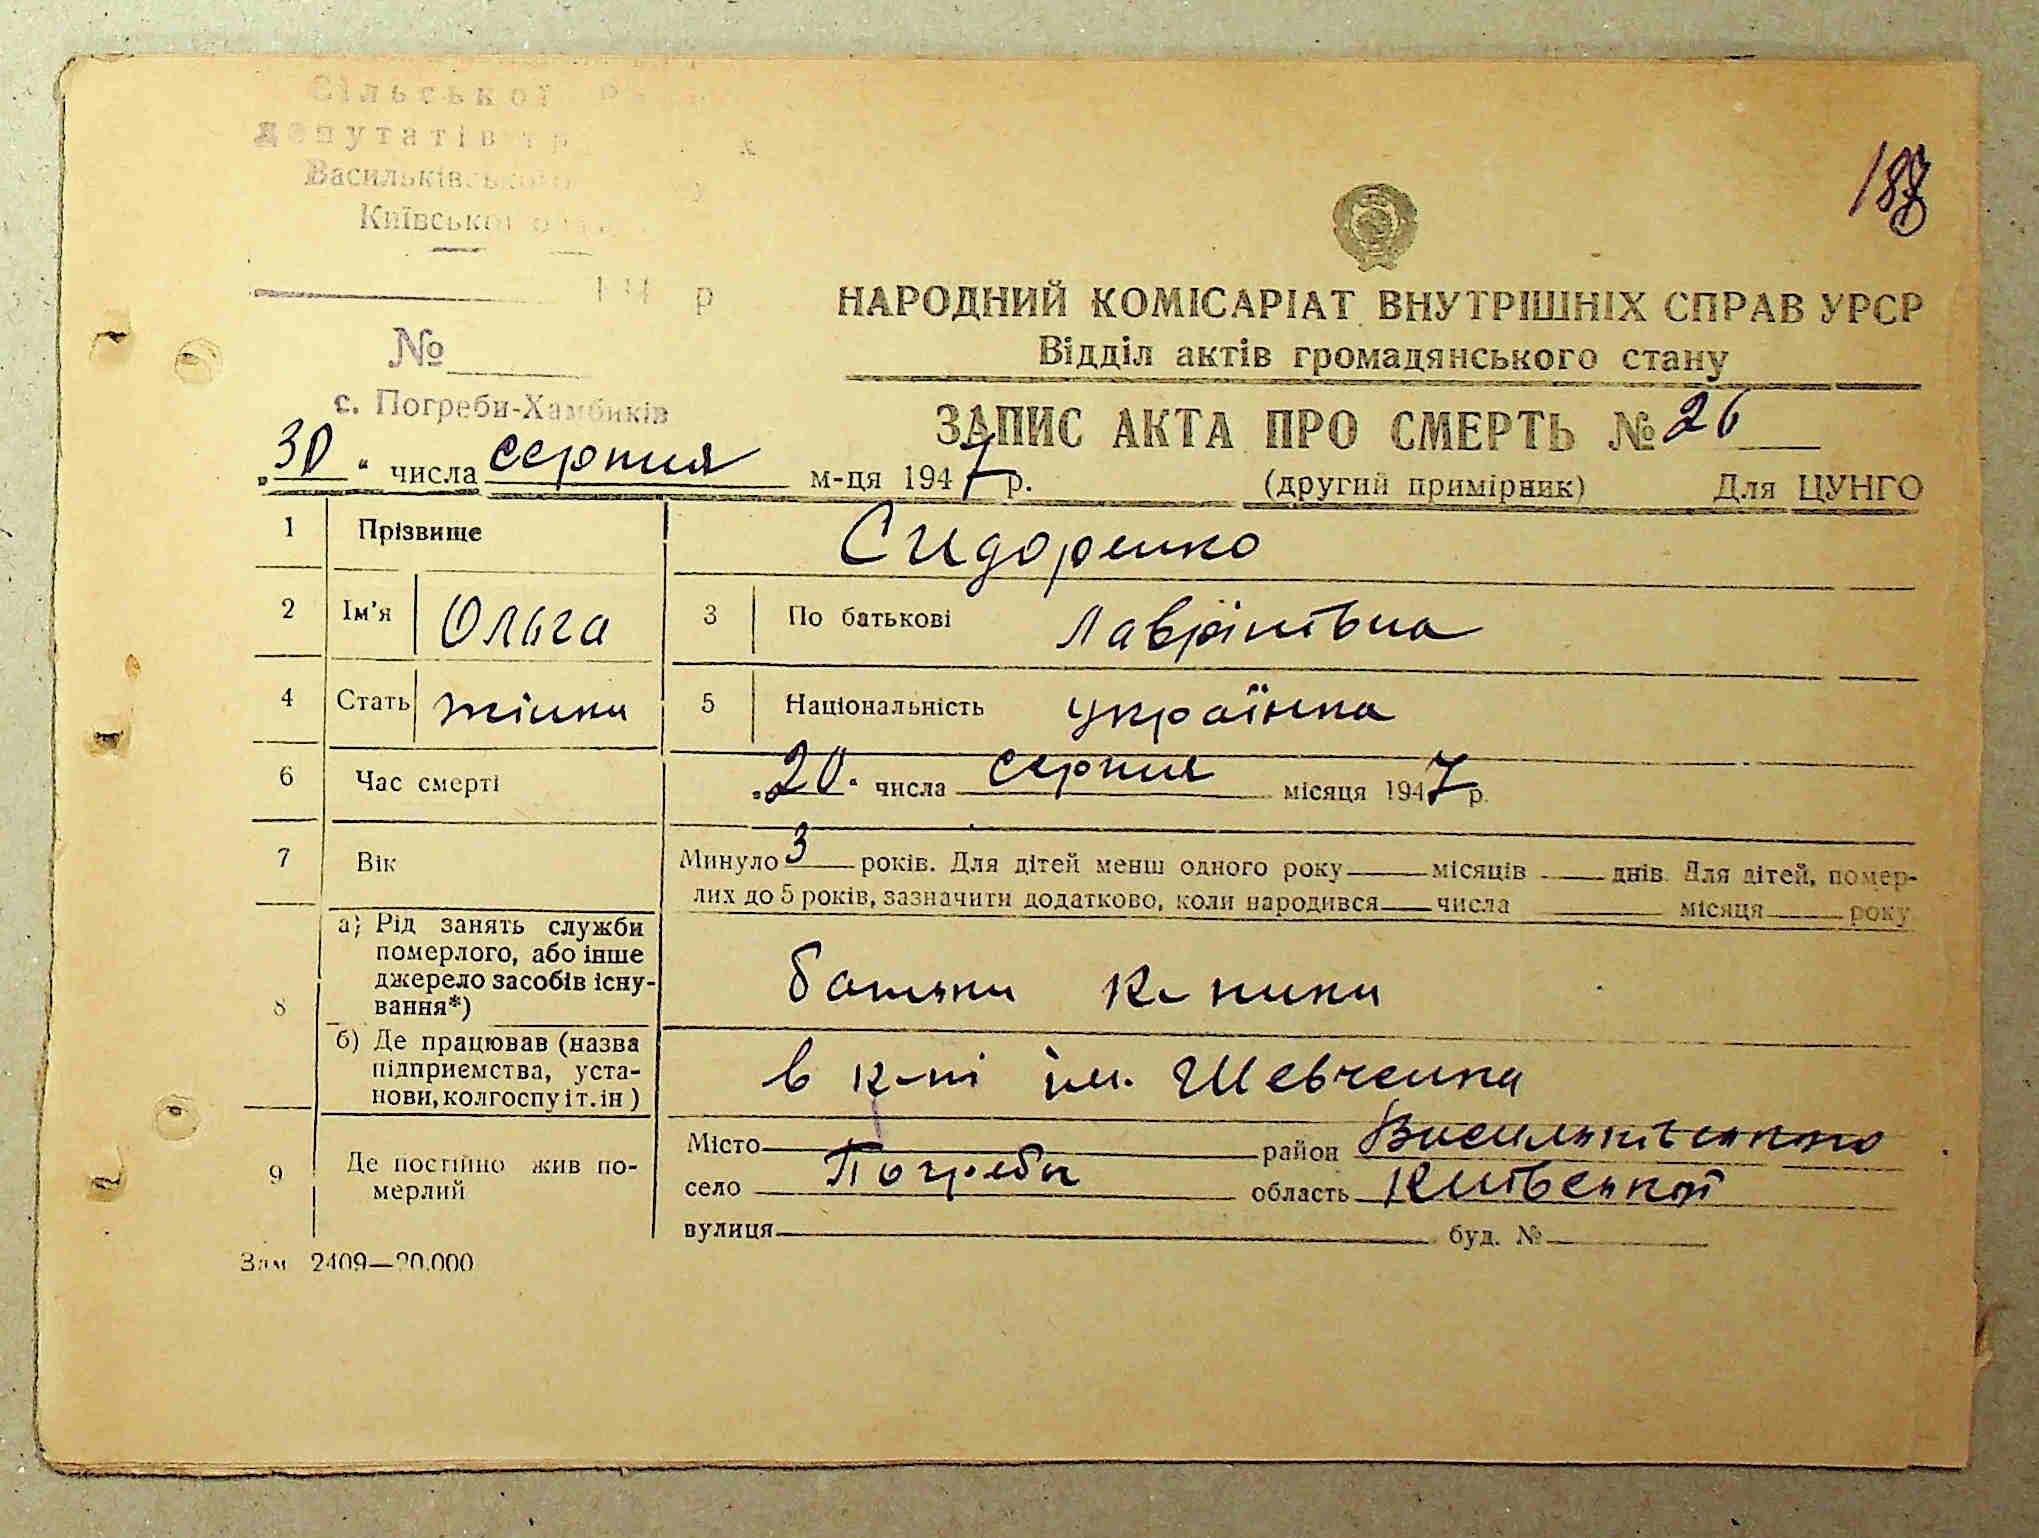 Сільської
депутатів
Васильківського
Київської
194 р
№
с. Погреби-Хамбиків
188
НАРОДНИЙ КОМІСАРІАТ ВНУТРІШНІХ СПРАВ УРСР
Відділ актів громадянського стану
ЗАПИС АКТА ПРО СМЕРТЬ № 26
„30“ числа серпня м-ця 1947 р. (другий примірник) Для ЦУНГО
1 Прізвище Сидоренко
2 Ім'я Ольга 3 По батькові Лаврінівна
4 Стать жінки 5 Національність українка
6 Час смерті „20“ числа серпня місяця 1947 р.
7 Вік Минуло 3 років. Для дітей менш одного року місяців днів. Для дітей, помер-
лих до 5 років, зазначити додатково, коли народився числа місяця року
8 а) Рід занять служби
померлого, або інше
джерело засобів існу-
вання*)
батьки к-пики
б) Де працював (назва
підприємства, уста-
нови, колгоспу і т. ін )
в к-пі ім. Шевченка
9 Де постійно жив по-
мерлий
Місто район Васильківського
село Погреби область Київської
вулиця буд. №
Зам 2409—20.000